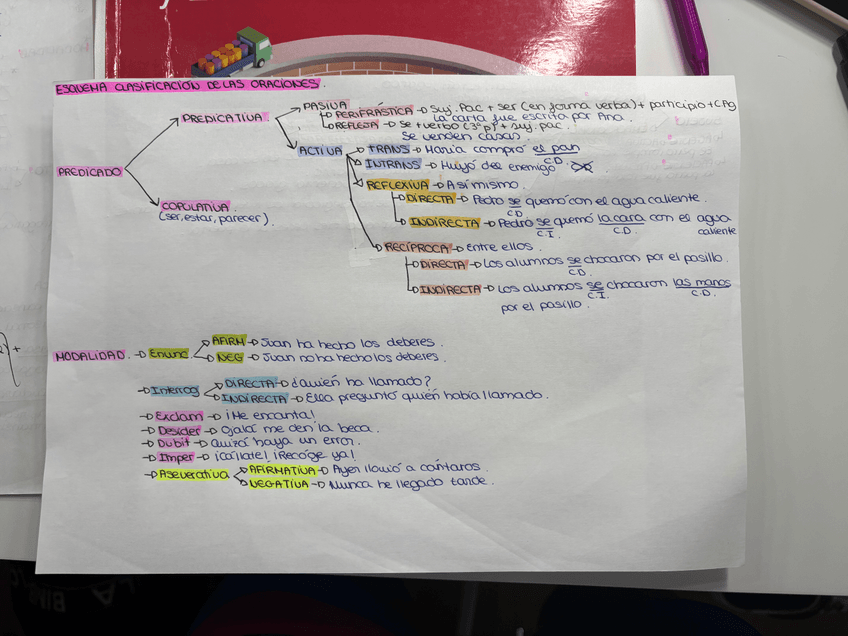 ESQUEMA CLASIFICACIÓN DE LAS ORACIONES.
PASIVA
PERIFRÁSTICA → Suj. Pac + ser (en forma verbal) + participio + CAg
La carta fue escrita por Ana.
PREDICATIVA
REFLEJA → Se + verbo (3ª p) + suj. pac.
Se venden casas.
ACTIVA
TRANS → María compró el pan
C.D.
INTRANS → Huyó del enemigo
PREDICADO
REFLEXIVA → A sí mismo.
DIRECTA → Pedro se quemó con el agua caliente.
C.D.
COPULATIVA
(ser, estar, parecer).
INDIRECTA → Pedro se quemó la cara con el agua caliente
C.I. C.D.
RECÍPROCA → Entre ellos.
DIRECTA → Los alumnos se chocaron por el pasillo.
C.D.
INDIRECTA → Los alumnos se chocaron las manos
C.I. C.D.
por el pasillo.
MODALIDAD. → Enunc
AFIRM → Juan ha hecho los deberes.
NEG → Juan no ha hecho los deberes.
→ Interrog
DIRECTA → ¿Quién ha llamado?
INDIRECTA → Ella preguntó quién había llamado.
→ Exclam → ¡Me encanta!
→ Desider → Ojalá me den la beca.
→ Dubit → Quizá haya un error.
→ Imper → ¡Cállate! ¡Recoge ya!
→ Aseverativa
AFIRMATIVA → Ayer llovió a cántaros.
NEGATIVA → Nunca he llegado tarde.